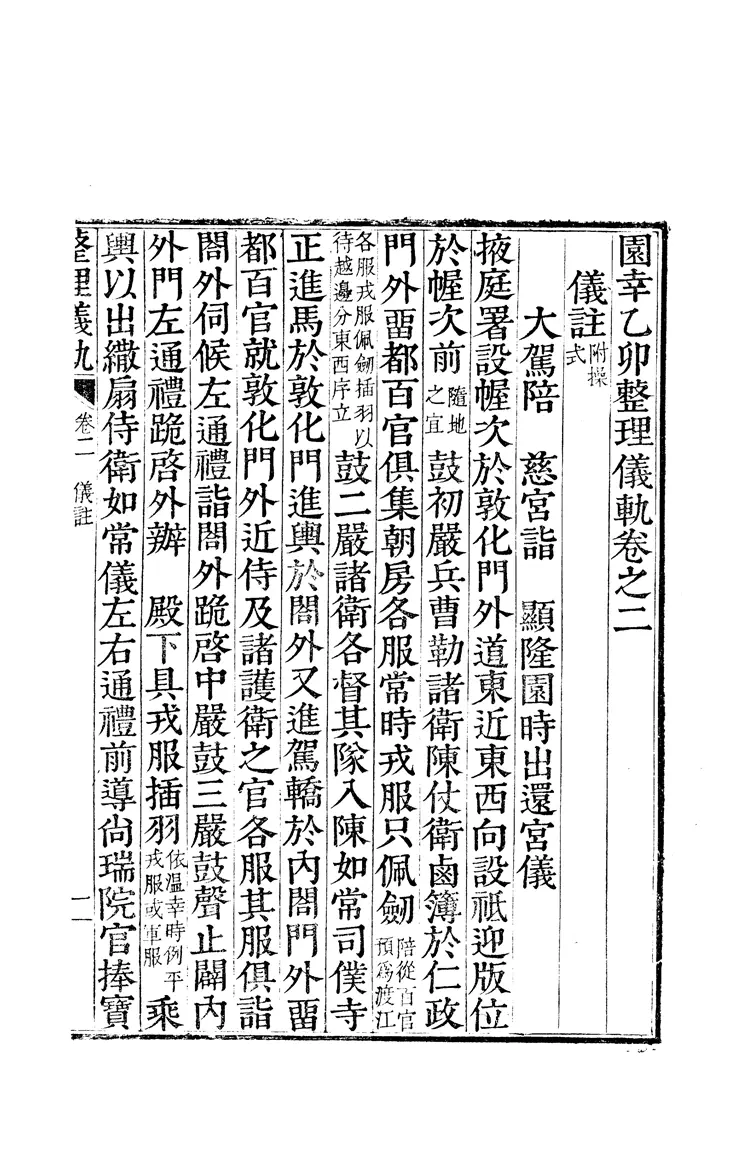 園幸乙卯整理儀軌卷之二
儀註附操式
大駕陪　慈宮詣　顯隆園時出還宮儀
掖庭署設幄次於敦化門外道東近東西向設祗迎版位
於幄次前隨地之宜　鼓初嚴兵曹勒諸衛陳仗衛鹵簿於仁政
門外畱都百官俱集朝房各服常時戎服只佩劒陪從百官預爲渡江
各服戎服佩劒插羽以待越邊分東西序立鼓二嚴諸衛各督其隊入陳如常司僕寺
正進馬於敦化門進輿於閤外又進駕轎於內閤門外畱
都百官就敦化門外近侍及諸護衛之官各服其服俱詣
閤外伺候左通禮詣閤外跪啓中嚴鼓三嚴鼓聲止闢內
外門左通禮跪啓外辦　殿下具戎服插羽依溫幸時例平戎服或軍服乘
輿以出繖扇侍衛如常儀左右通禮前導尙瑞院官捧寶
整理儀軌　卷二　儀註　一